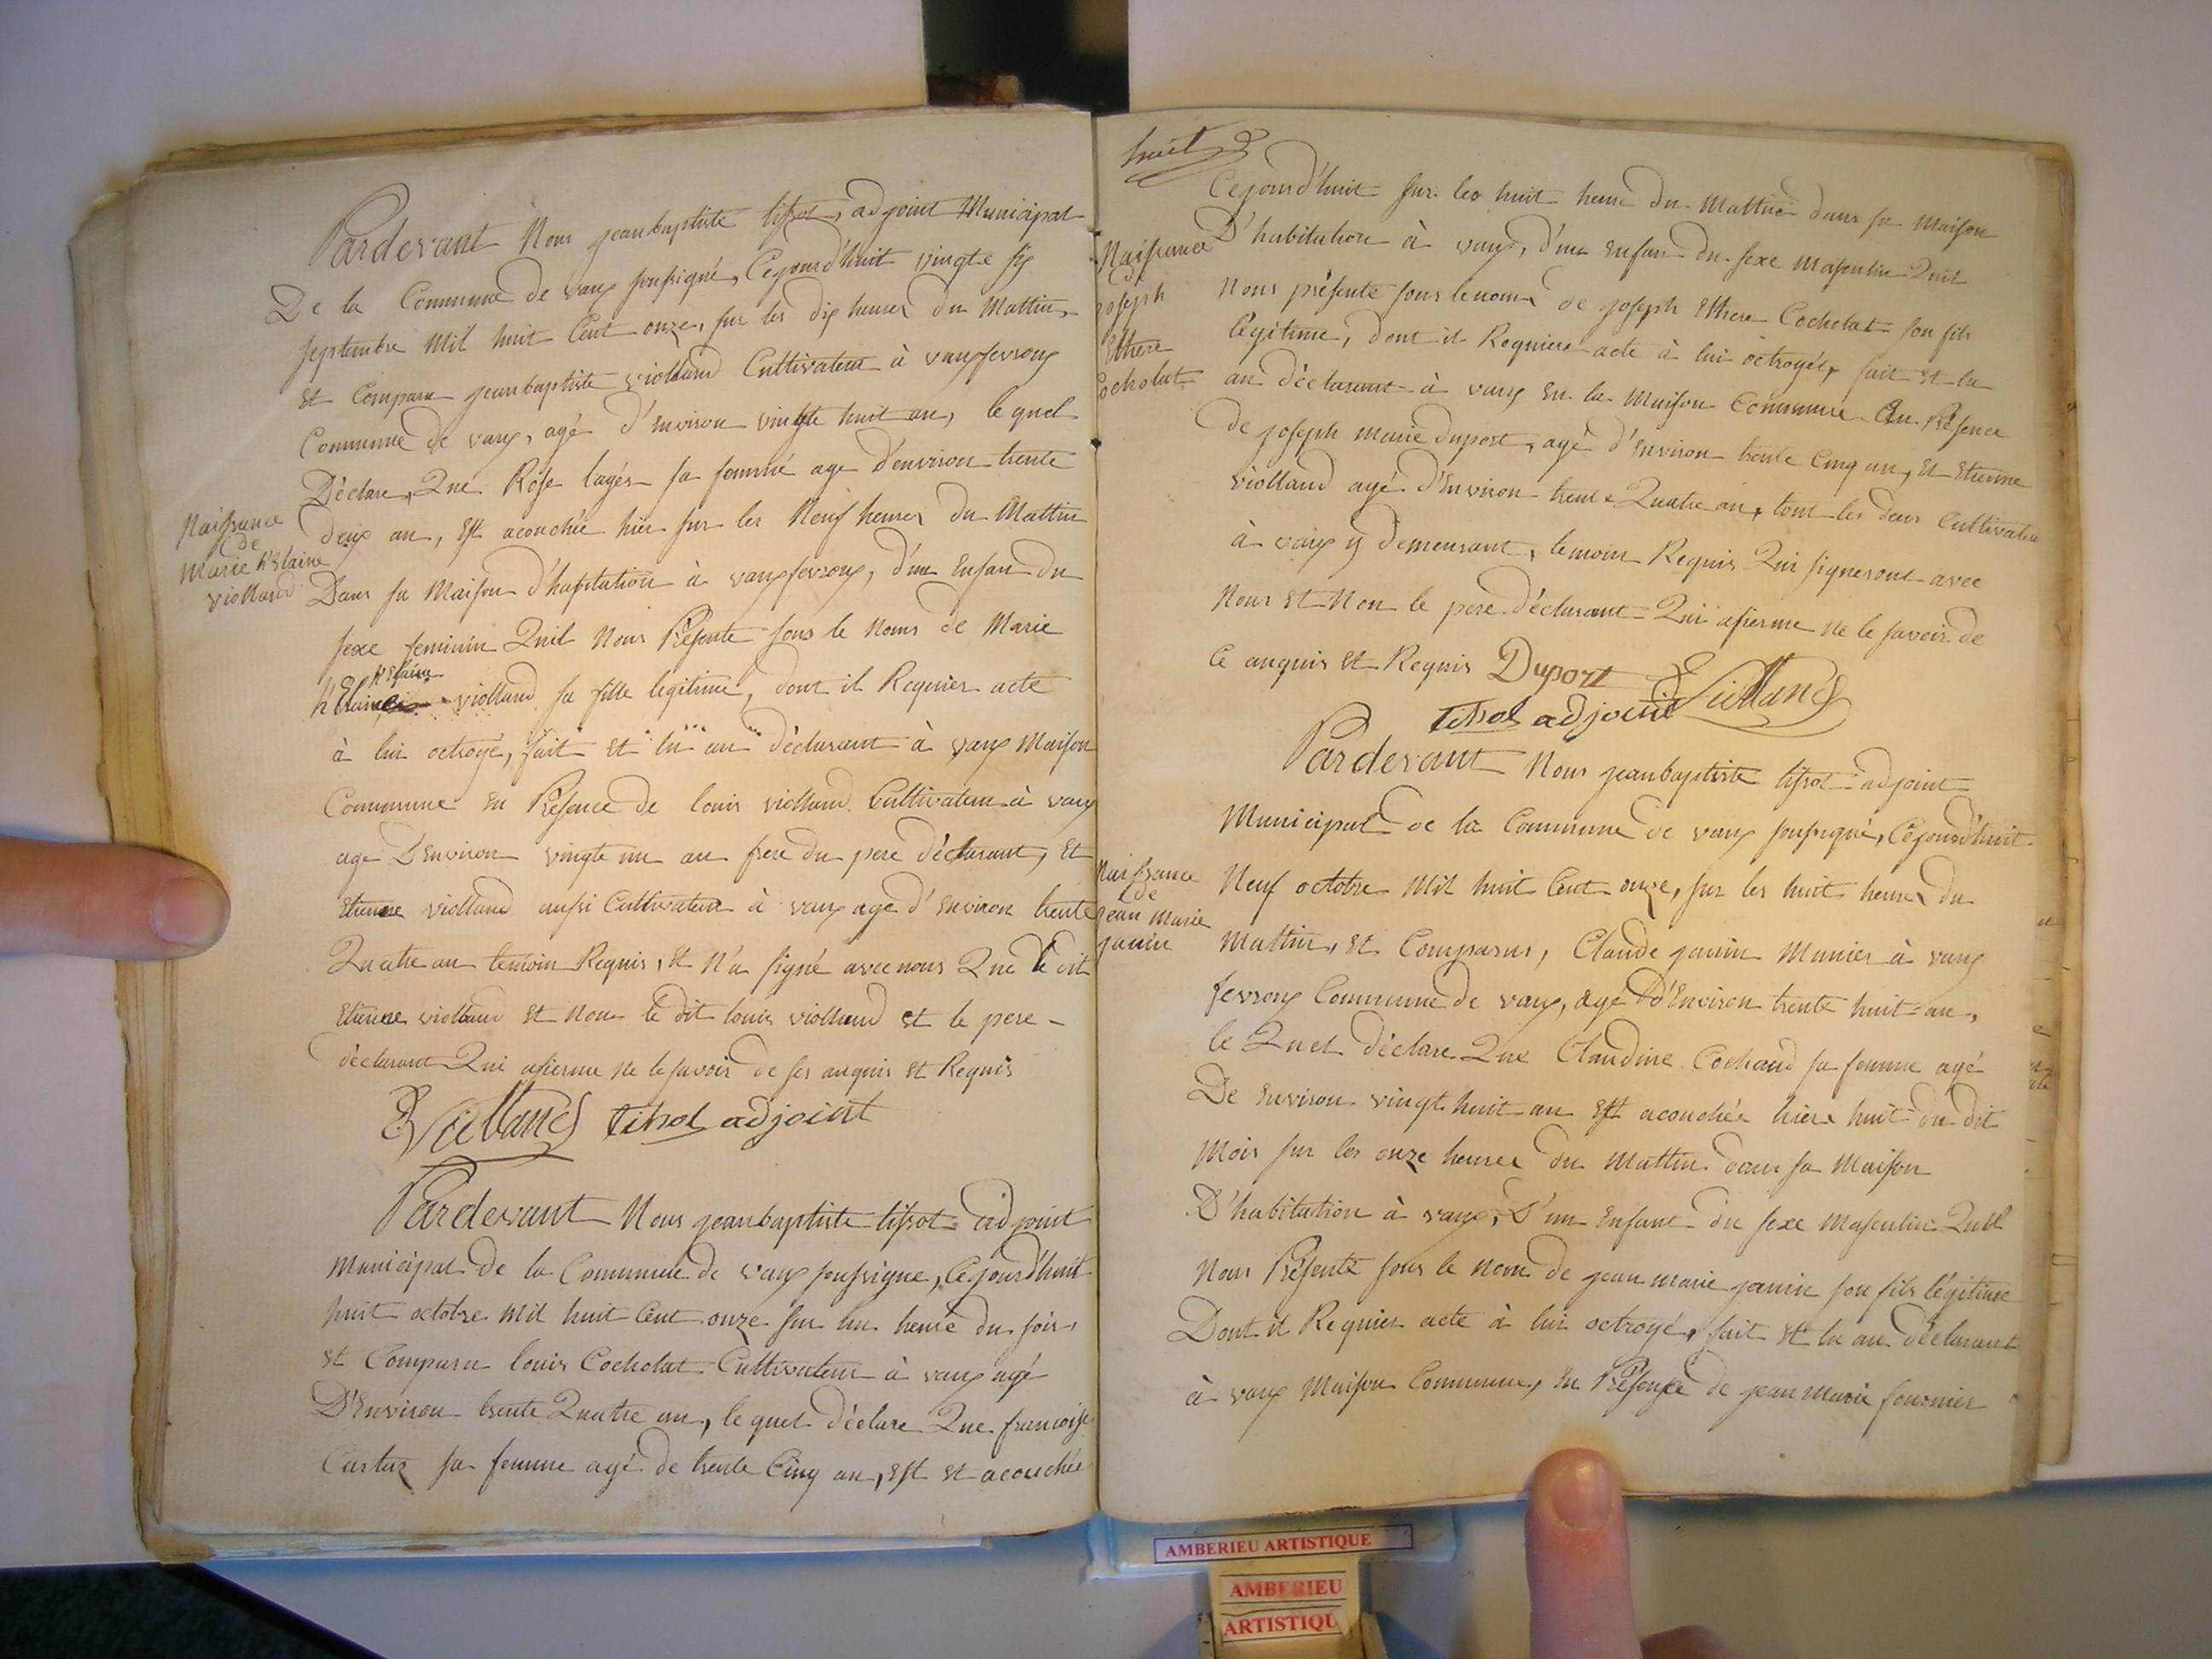 Pardevant Nous jean baptiste tissot, adjoint Municipal
De la Commune de vaux soussigné, Cejourd'huit vingte six
septembre Mil huit Cent onze, sur les dix heures du Mattin
Et Comparu jean baptiste violland Cultivateur à vauxfevroux
Commune de vaux, agé d'Environ vingte huit an, le quel
Déclare, Que Rose lagér sa femme age d'environ trente
Naissance
de
Marie h'Elaine
violland
deux an, Est acouchée hier sur les Neuf heures du Mattin
Dans sa Maison d'habitation à vauxfevroux, d'un Enfan du
sexe feminin Quil Nous Présente sous le Noms de Marie
h'Elaine
h'Elaine violland sa fille legitime, dont il Requier acte
à lui octroyé, fait et lu au déclarant à vaux Maison
Commune En Présence de louis violland Cultivateur à vaux
age D'Environ vingte un an frere du pere déclarant, Et
Etienne violland aussi Cultivateur à vaux age d'Environ trente
Quatre an temoin Requis, Et N'a signé avec nous Que le dit
Etienne violland Et Non le dit louis violland et le pere -
déclarant Qui afierme Ne le savoir de ses anquis Et Requis
E Violland tissot adjoint
Pardevant Nous jean baptiste tissot adjoint
Municipal de la Commune de vaux soussigne, Cejourd'huit
huit octobre Mil huit Cent onze sur hu heure du soir,
et Comparu louis Cocholat Cultivateur à vaux agé
D'Environ trente Quatre an, le quel déclare Que francoise
Curtuz sa femme agé de trente Cinq an, Est et acouchée
huit 8
Cejourd'huit sur les huit heure du Mattin dans sa Maison
Naissance
de
joseph
Ethere
Cocholat
D'habitation à vaux, d'un Enfan du sexe Masculin Quil
Nous présente sous le nom de joseph Ethere Cocholat son fils
légitime, dont il Requiere acte à lui octroyér, fait et lu
au déclarant à vaux En la Maison Commune En Présence
de joseph marie duport, agé d'Environ trente Cinq an, Et Etienne
violland agé d'Environ trente Quatre an, tout les deux Cultivateur
à vaux y demeurant, temoin Requis Qui signeront avec
Nous Et Non le pere déclarant Qui afierme ne le savoir de
Ce anquis Et Requis Duport E Violland
tissot adjoint
Pardevant Nous jean baptiste tissot adjoint
Municipal de la Commune de vaux soussigné, Cejourd'huit
Naissance
de
jean marie
janin
Neuf octobre Mil huit Cent onze, sur les huit heures du
Mattin, et Comparus, Claude janin Munier à vaux
fevroux Commune de vaux, agé d'Environ trente huit an,
le Quel déclare Que Claudine Cochaud sa femme agé
De Environ vingt huit an Est acouchée hiere huit du dit
Mois sur les onze heures du Mattin dans sa Maison
D'habitation à vaux, D'un Enfant du sexe Masculin Quil
Nous Présente sous le nom de jean marie janin son fils légitime
Dont il Requier acte à lui octroyé, fait Et lu au déclarant
à vaux Maison Commune, En Présence de jean Marie fournier
AMBERIEU ARTISTIQUE
AMBERIEU
ARTISTIQU